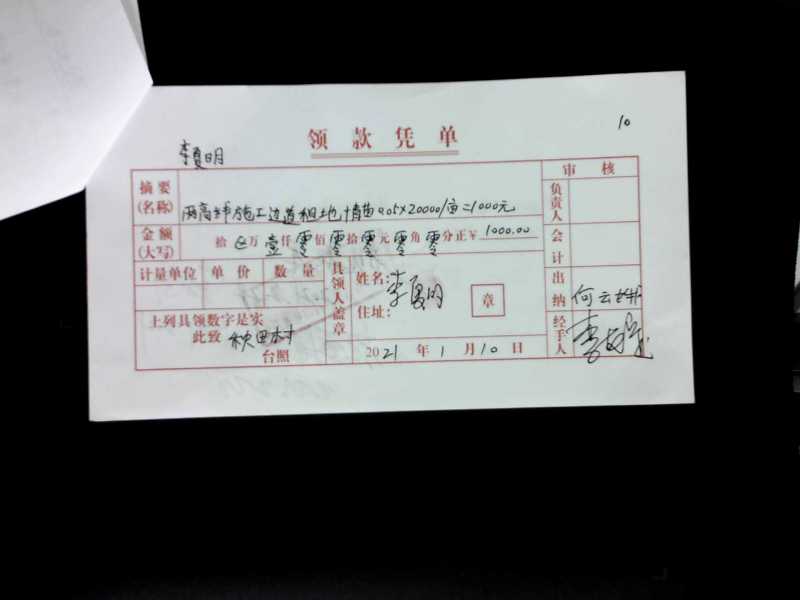 10
领款凭单
李夏明
审核
摘要(名称) 两高 施工边道租地 青苗0.05×20000/亩=1000元
负责人
金额(大写) 拾 万壹仟零佰零拾零元零角零分正￥1000.00
会计
计量单位 单价 数量
具领人盖章
姓名: 李夏明
章
住址:
出纳 何云
上列具领数字是实
此致 秋田村
台照
2021年1月10日
经手人 李